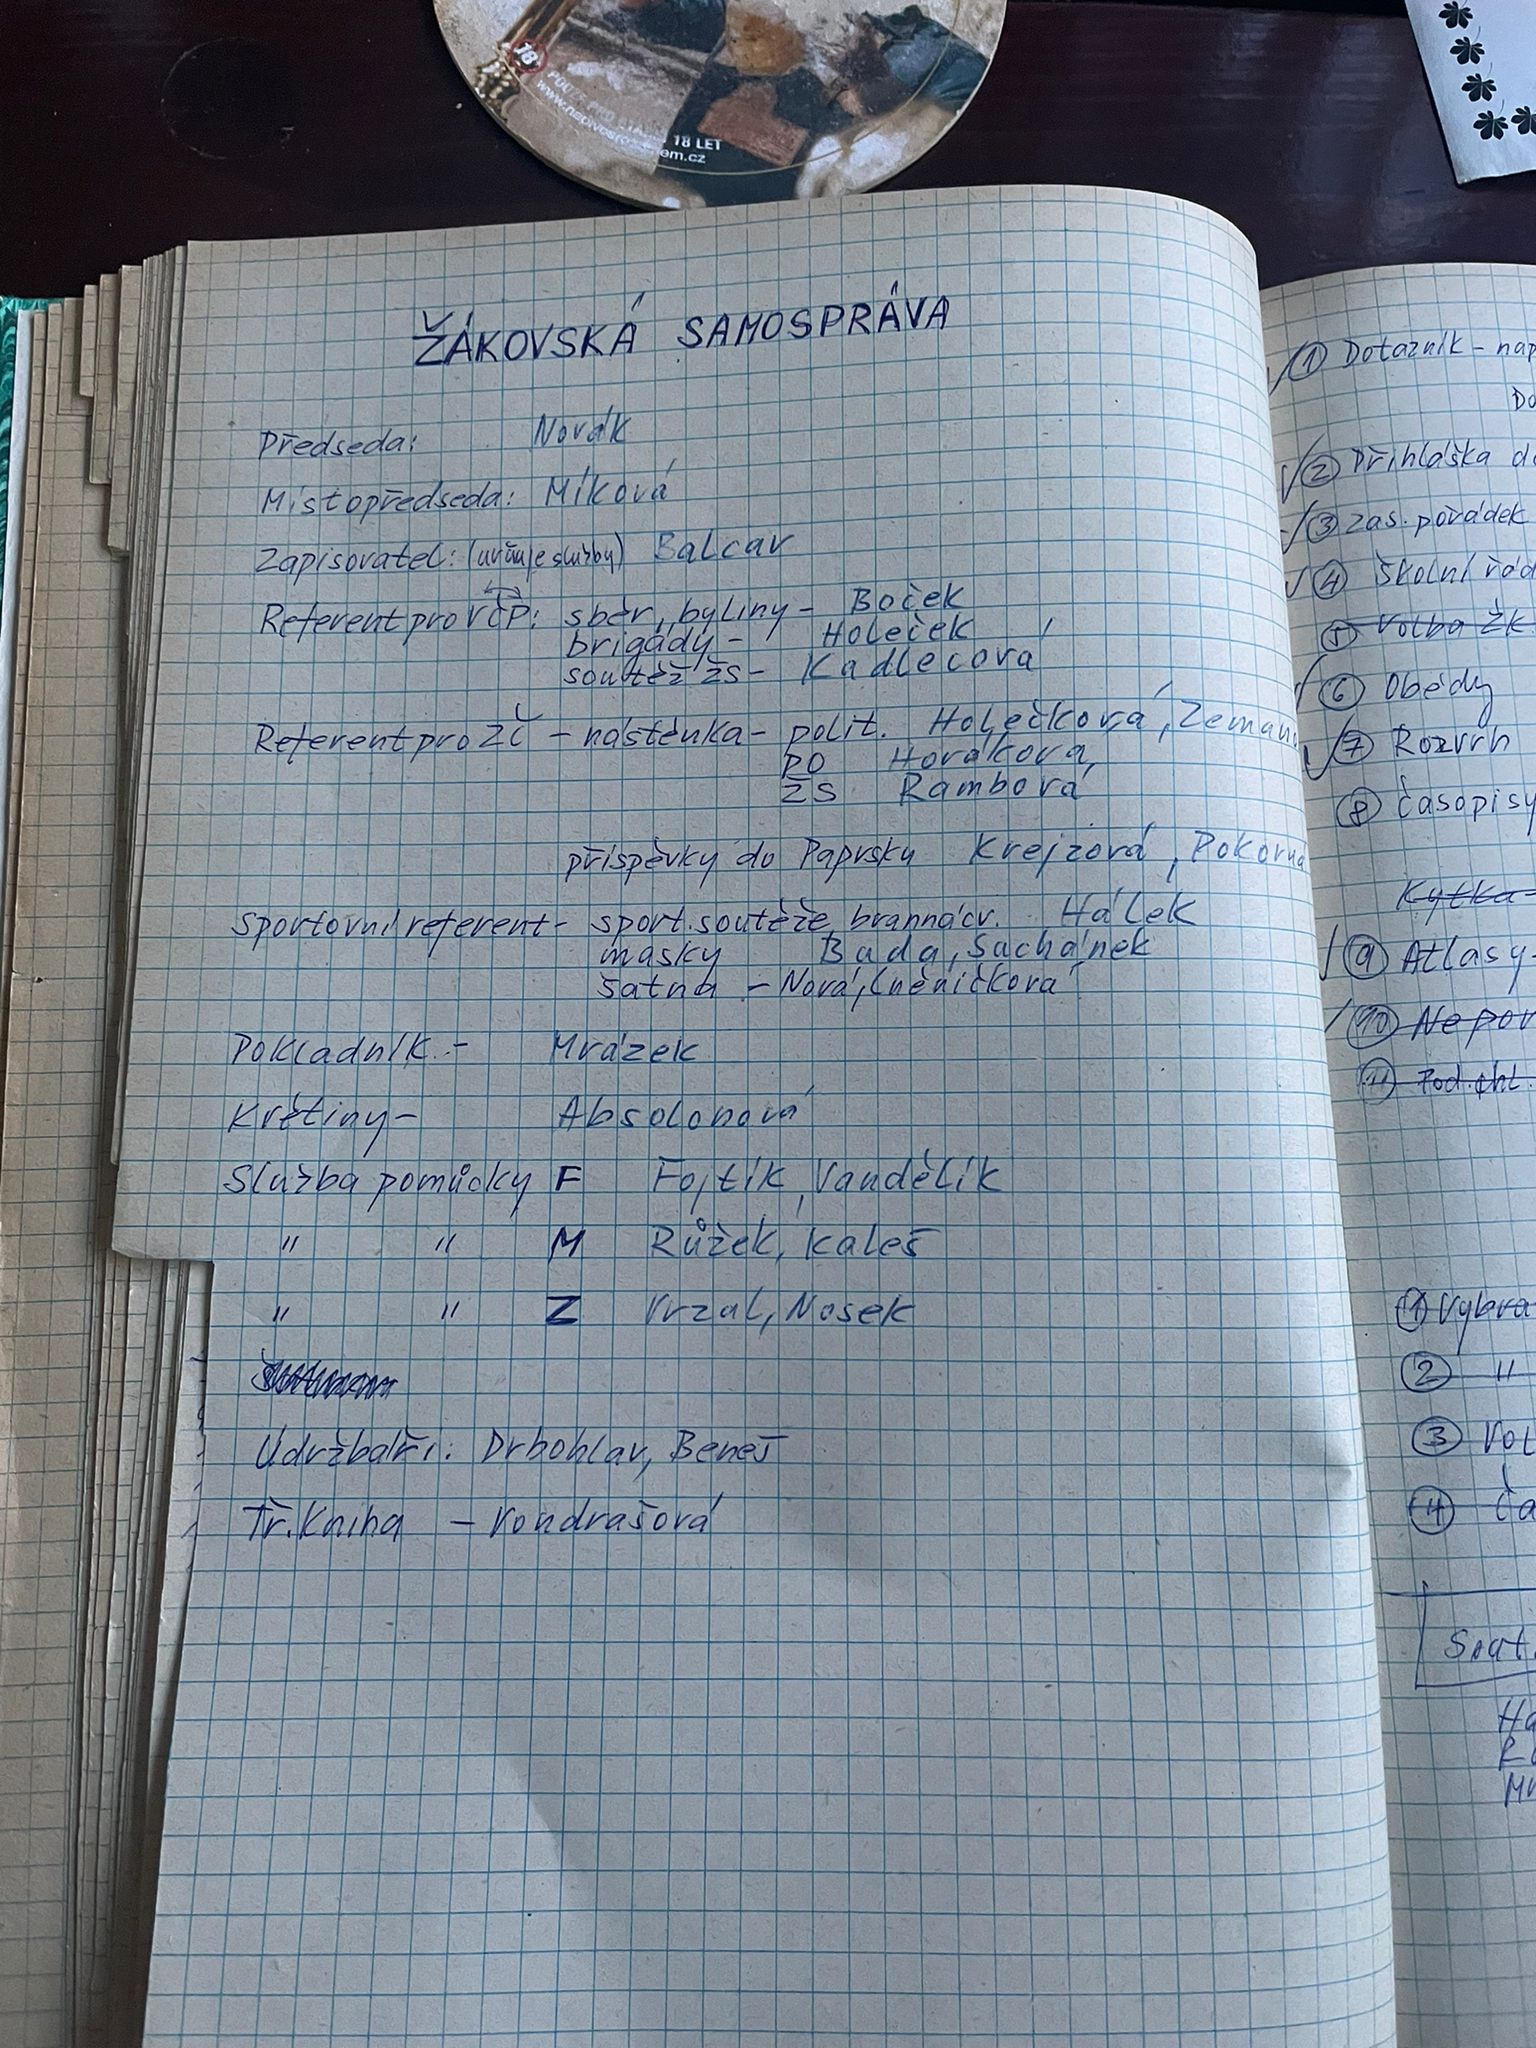 18
18 LET
ŽÁKOVSKÁ SAMOSPRÁVA
Předseda: Novák
Místopředseda: Míková
Zapisovatel: (určuje služby) Balcar
Referent pro VČP: sběr, byliny - Boček
brigády - Holeček
soutěž ŽS - Kadlecová
Referent pro ZČ - nástěnka - polit. Holečková,
PO Horáková,
ŽS Rambová
příspěvky do Paprsky Krejzová, Pokorná
Sportovní referent - sport. soutěže, branná cv. Hálek
masky Bada, Suchánek
šatna - Nová, Lněničková
Pokladník - Mrázek
Květiny - Absolonová
Služba pomůcky F Fojtík, Vandělík
" " M Růžek, Kaleš
" " Z Vrzal, Nosek
Údržbáři: Drbohlav, Beneš
Tř. kniha - Vondrašová
1 Dotazník - nap
Do
2 Přihláška do
3 Zas. pořádek
4 Školní řád
5 Volba ŽK
6 Obědy
7 Rozvrh
8 Časopisy
Kytka -
9 Atlasy -
10 Nepov
11
1 Vybra
2 "
3 Vol
4 Ča
Ha